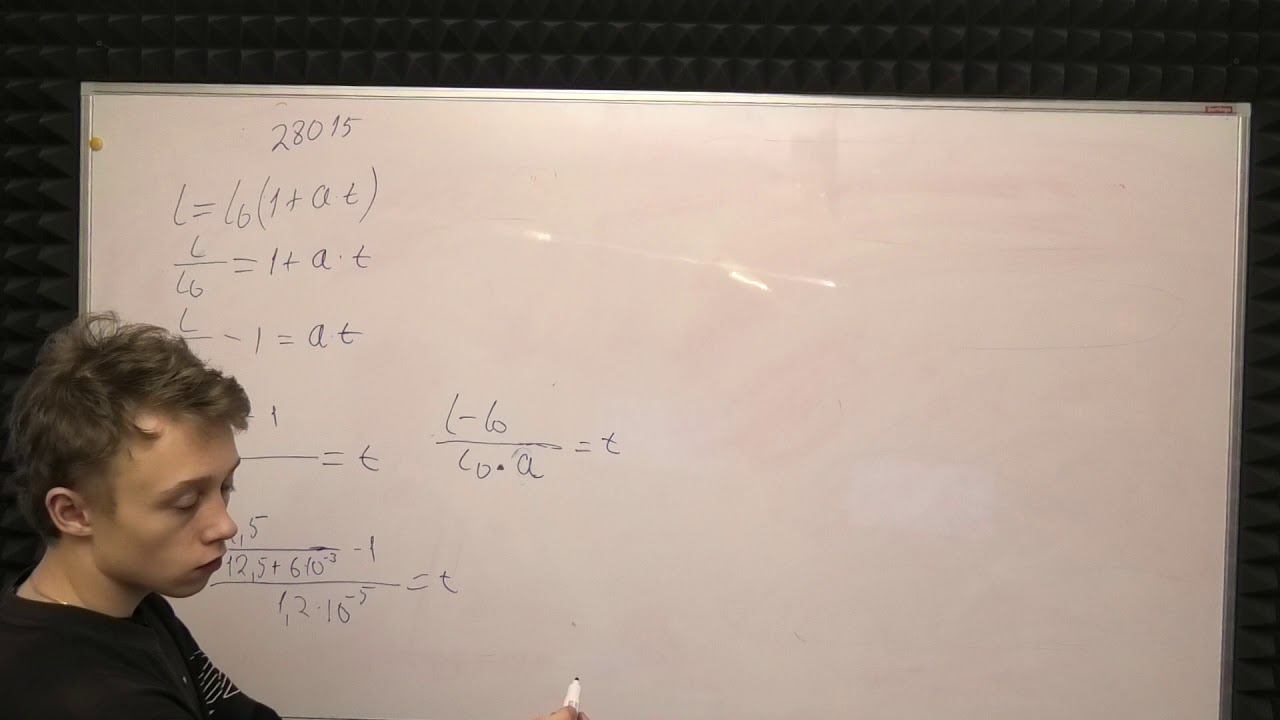 28015
l=l₀(1+a·t)
l/l₀=1+a·t
l -1=a·t
-1 =t
l-l₀/l₀·a=t
,5/12,5+6·10⁻³ -1/1,2·10⁻⁵=t